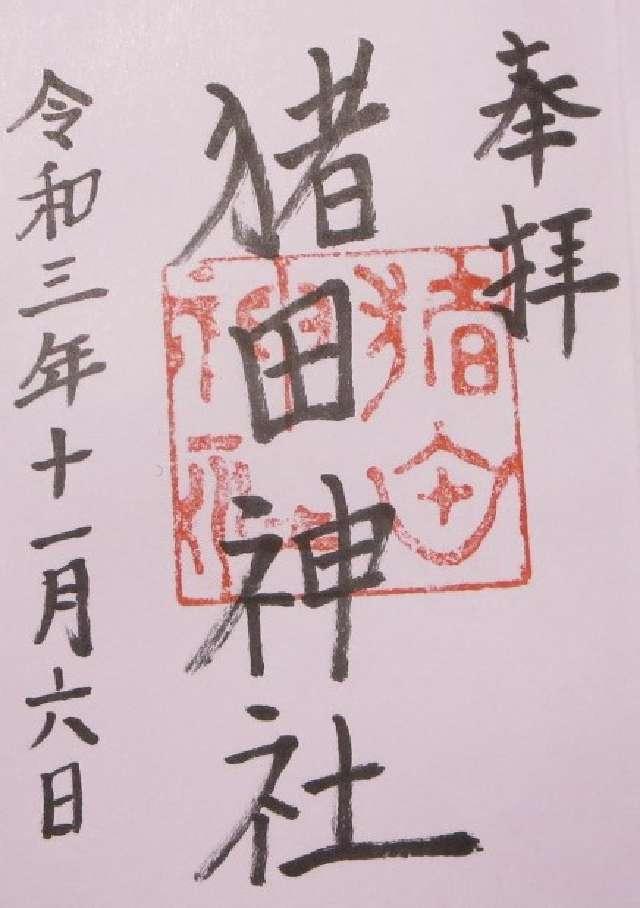 奉拝
猪田神社
猪田神社
令和三年十一月六日